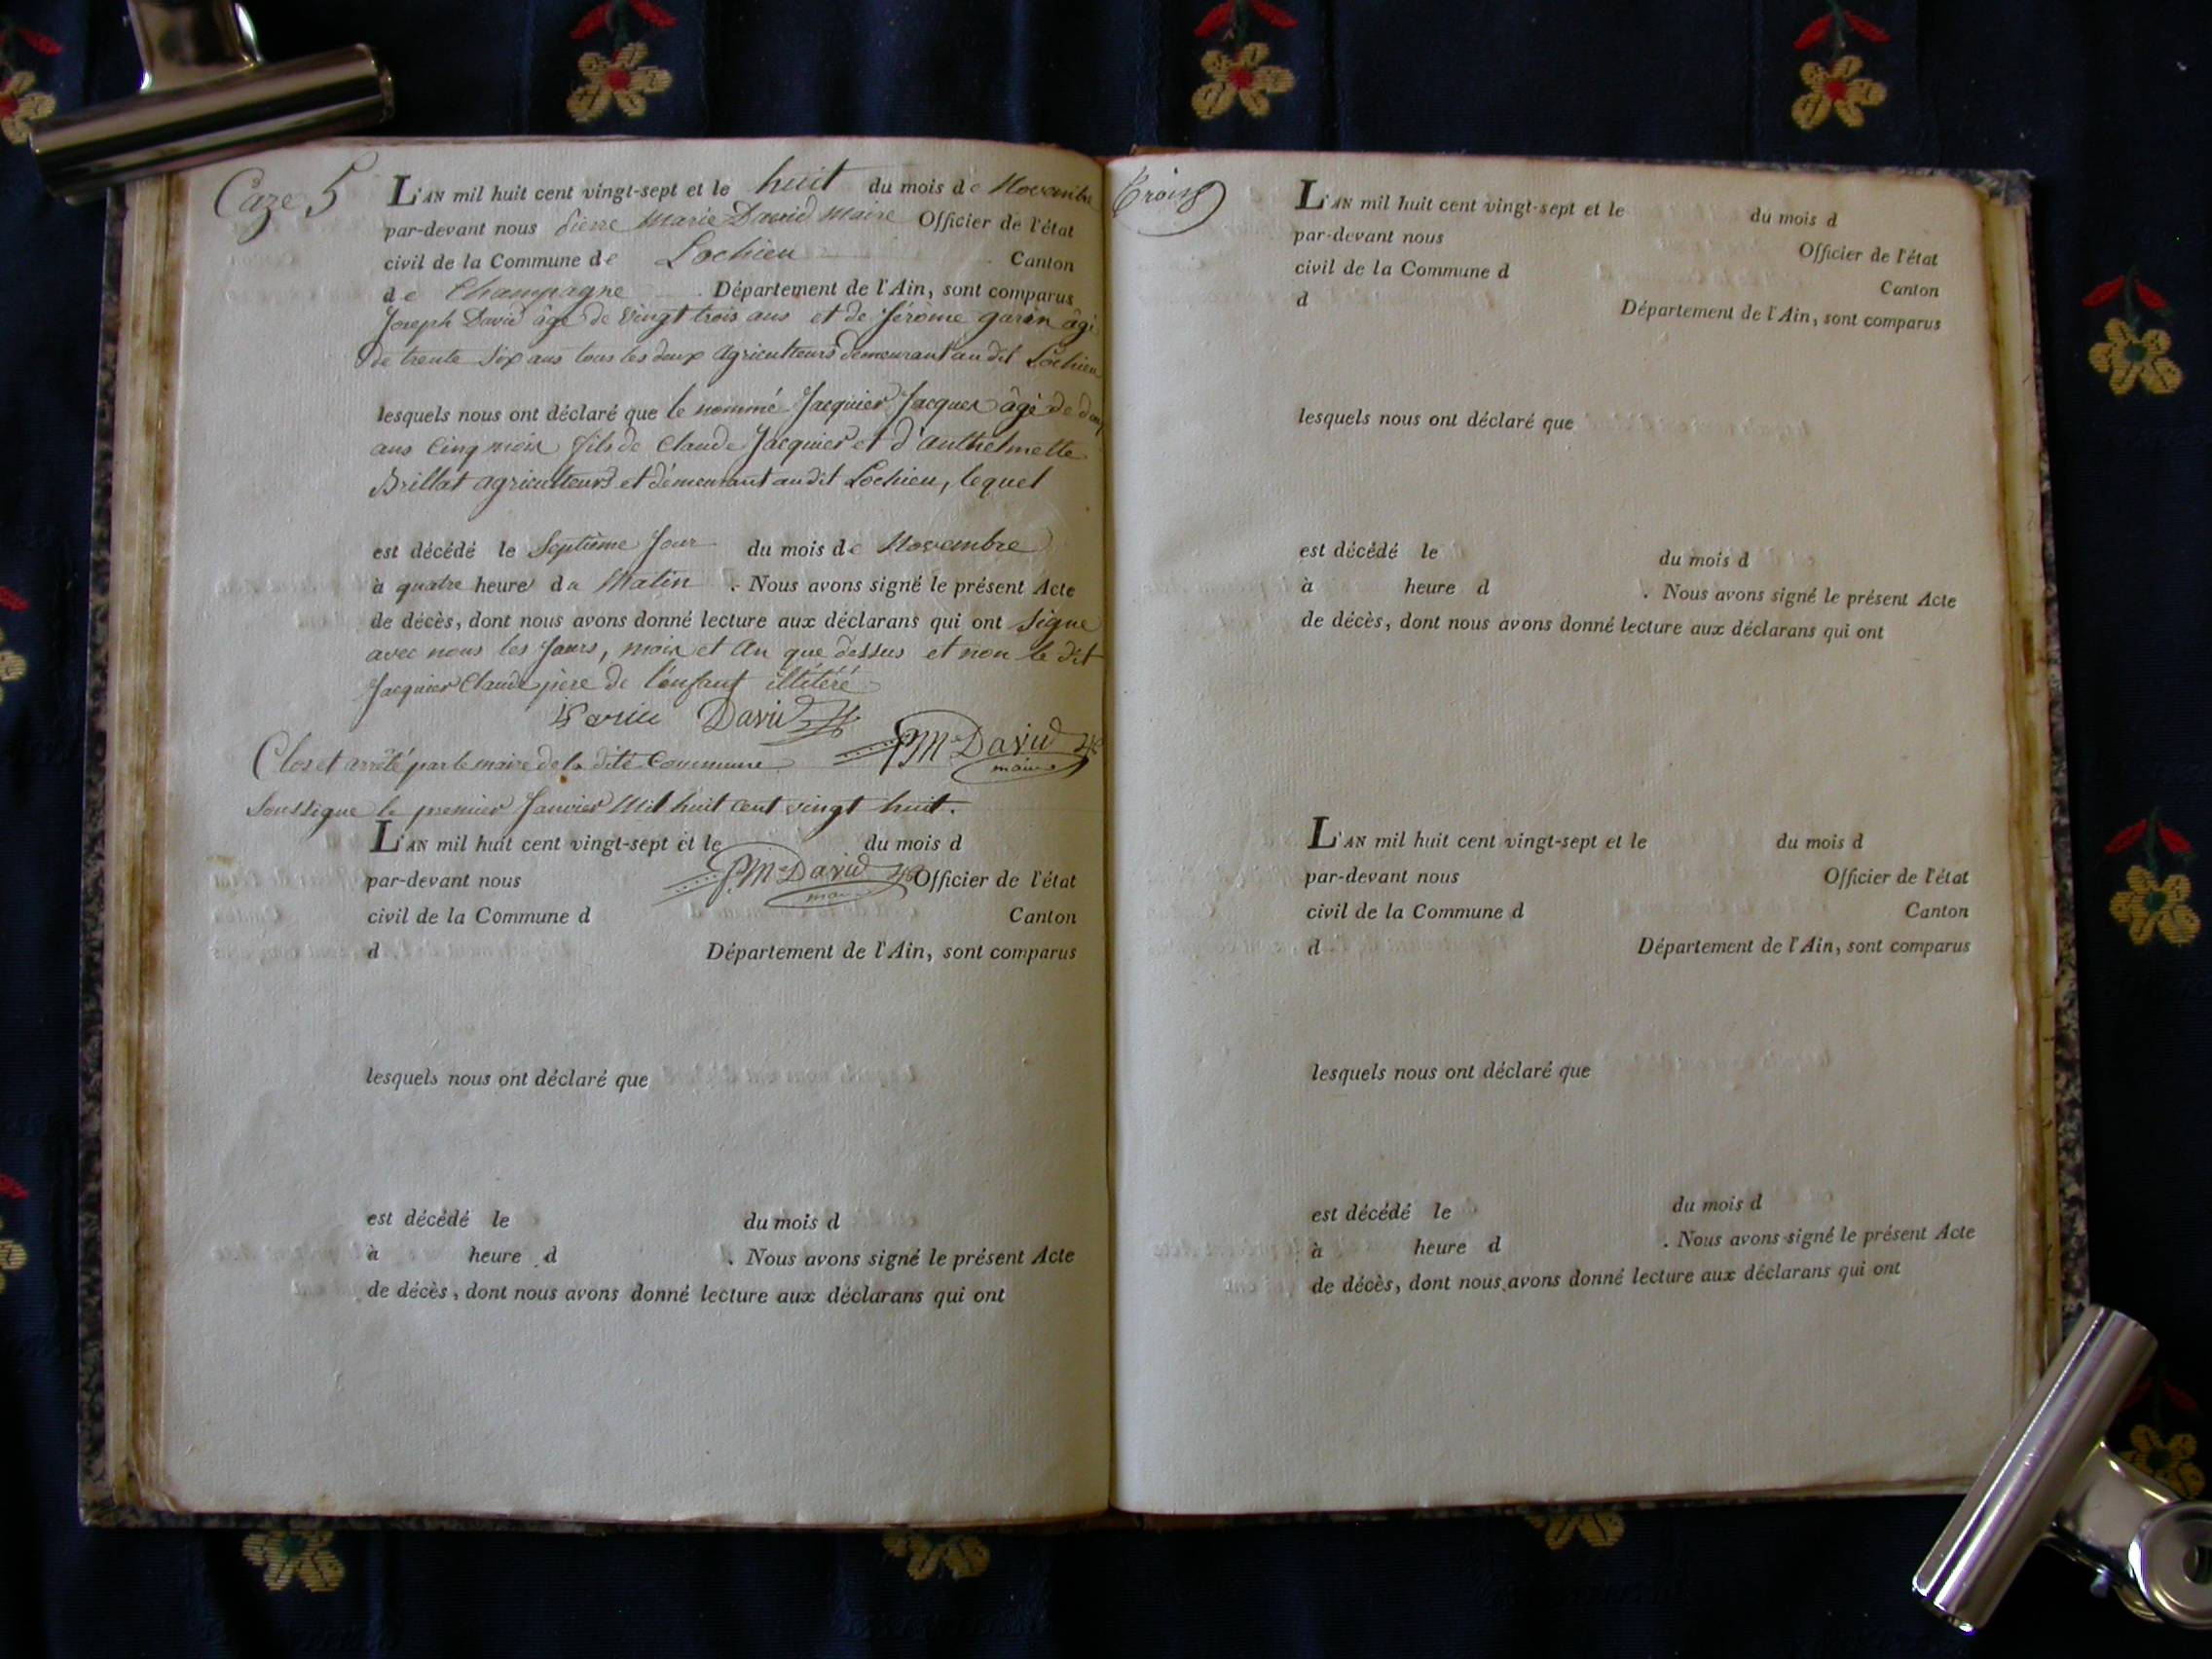 Caze 5
L'AN mil huit cent vingt-sept et le huit du mois de Novembre
par-devant nous pierre Marie David Maire Officier de l'état
civil de la Commune de Lochieu Canton
de Champagne Département de l'Ain, sont comparus
Joseph David âgé de vingt trois ans et de Jérome garin âgé
de trente Six ans tous les deux agriculteurs demeurant au dit Lochieu
lesquels nous ont déclaré que le nommé Jacquier Jacques âgé de
ans Cinq mois fils de Claude Jacquier et d'anthelmette
Brillat agriculteurs et demeurant audit Lochieu, lequel
est décédé le Septième Jour du mois de Novembre
à quatre heure du Matin . Nous avons signé le présent Acte
de décès, dont nous avons donné lecture aux déclarans qui ont Signe
avec nous les Jours, mois et An que dessus et non le dit
Jacquier Claude père de l'enfant illitéré
David
PM David
maire
Clos et arrêté par le maire de la dite Commune
Soussigne le premier Janvier Mil huit cent vingt huit.
L'AN mil huit cent vingt-sept et le du mois d
PM David
par-devant nous Officier de l'état
civil de la Commune d Canton
d Département de l'Ain, sont comparus
lesquels nous ont déclaré que
est décédé le du mois d
à heure d . Nous avons signé le présent Acte
de décès, dont nous avons donné lecture aux déclarans qui ont
L'AN mil huit cent vingt-sept et le du mois d
par-devant nous Officier de l'état
civil de la Commune d Canton
d Département de l'Ain, sont comparus
lesquels nous ont déclaré que
est décédé le du mois d
à heure d . Nous avons signé le présent Acte
de décès, dont nous avons donné lecture aux déclarans qui ont
L'AN mil huit cent vingt-sept et le du mois d
par-devant nous Officier de l'état
civil de la Commune d Canton
d Département de l'Ain, sont comparus
lesquels nous ont déclaré que
est décédé le du mois d
à heure d . Nous avons signé le présent Acte
de décès, dont nous avons donné lecture aux déclarans qui ont